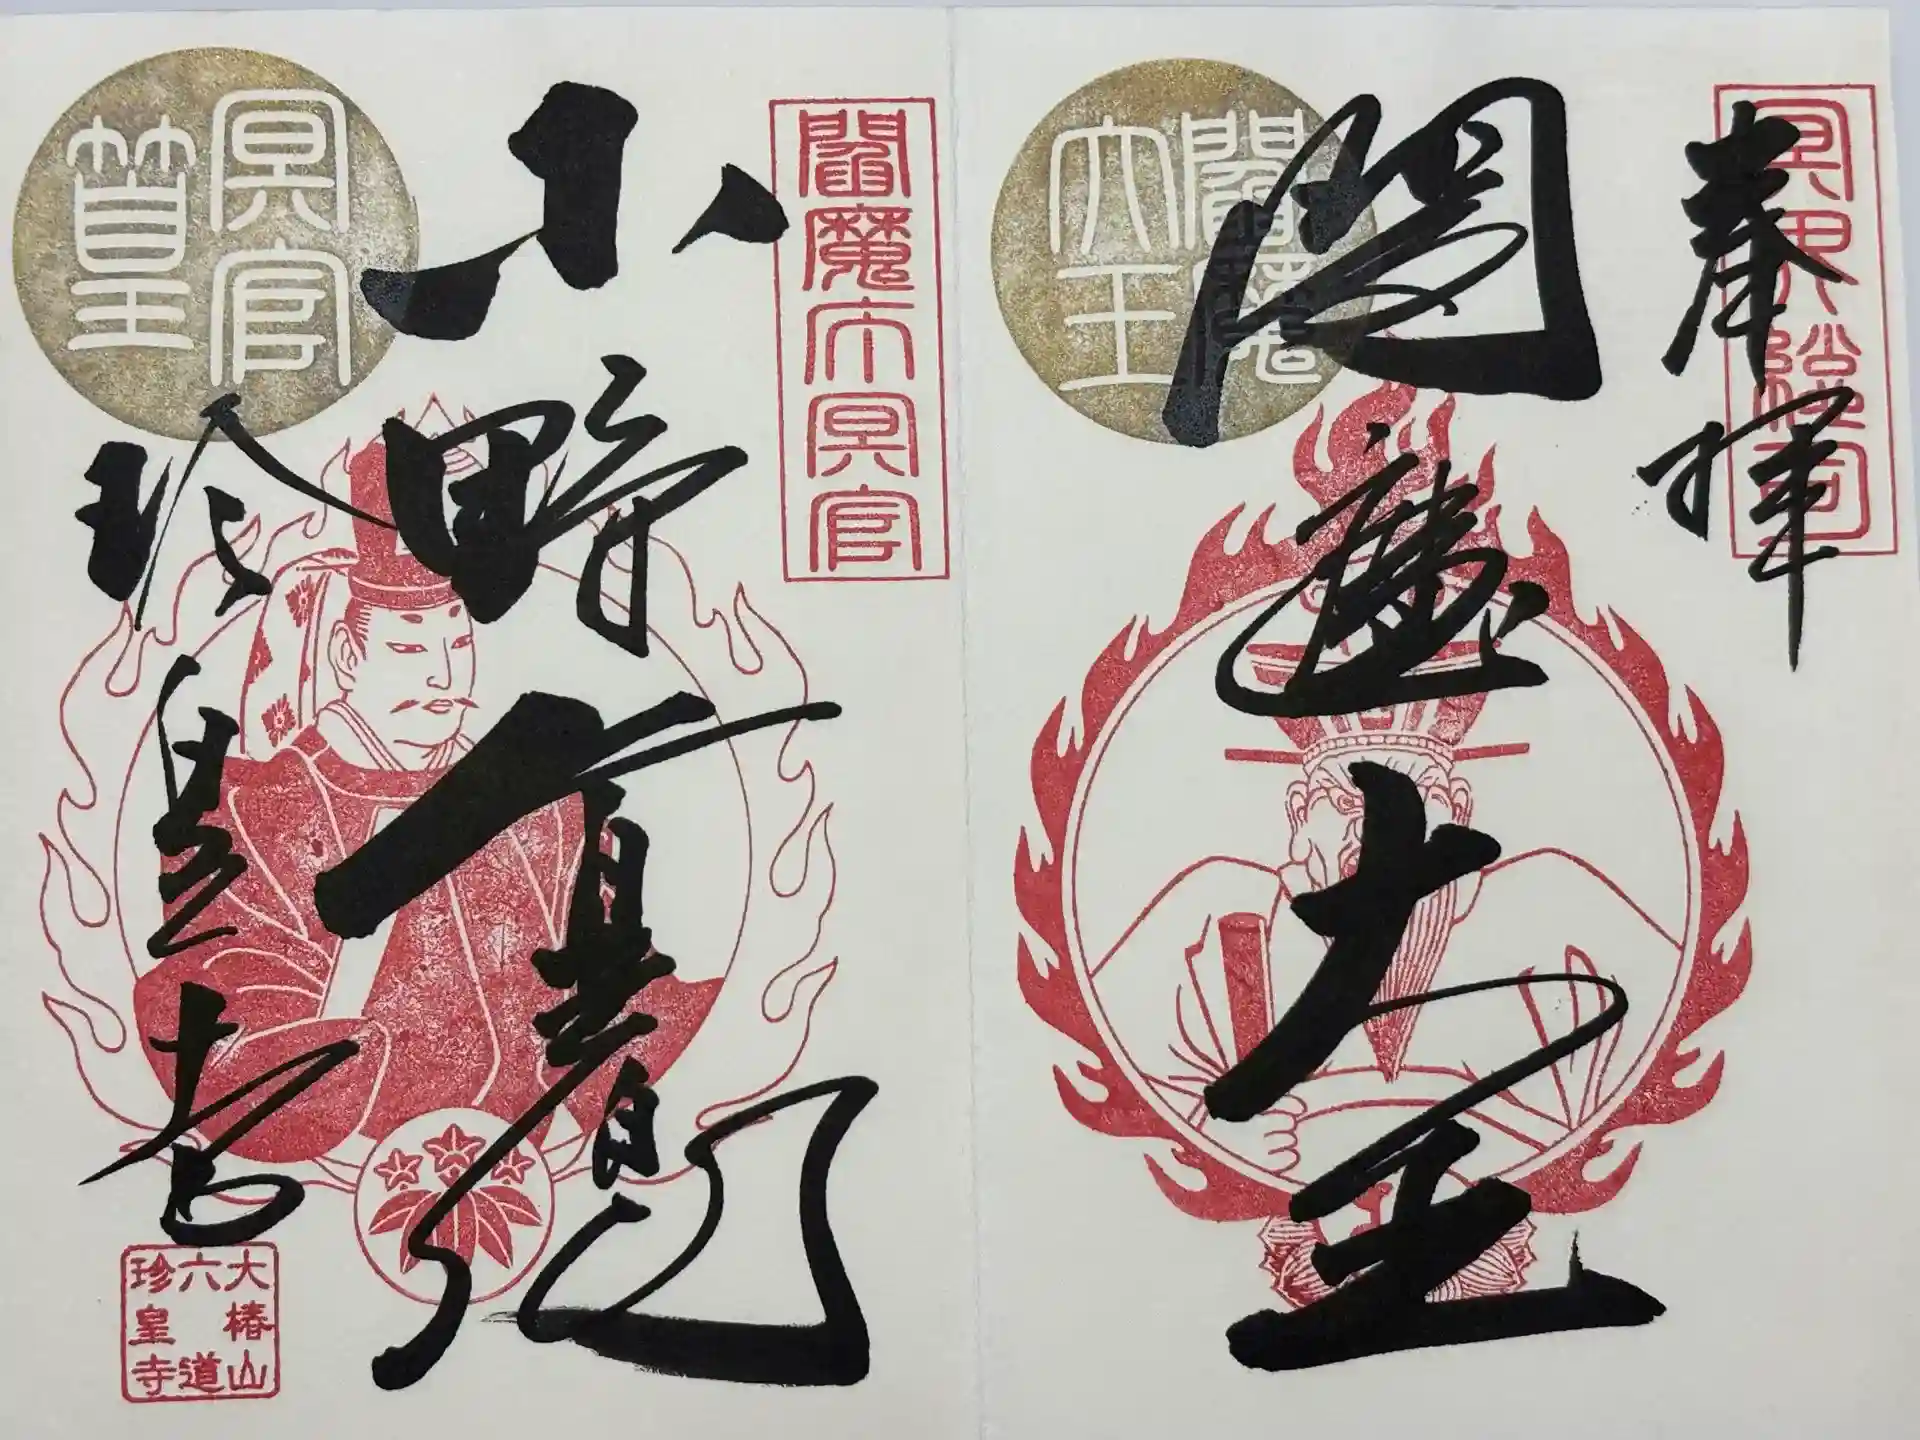 奉拝
冥界總司
閻魔大王
閻魔大王
閻魔庁冥官
小野篁卿
冥官篁
珍皇寺
大椿山
六道
珍皇寺